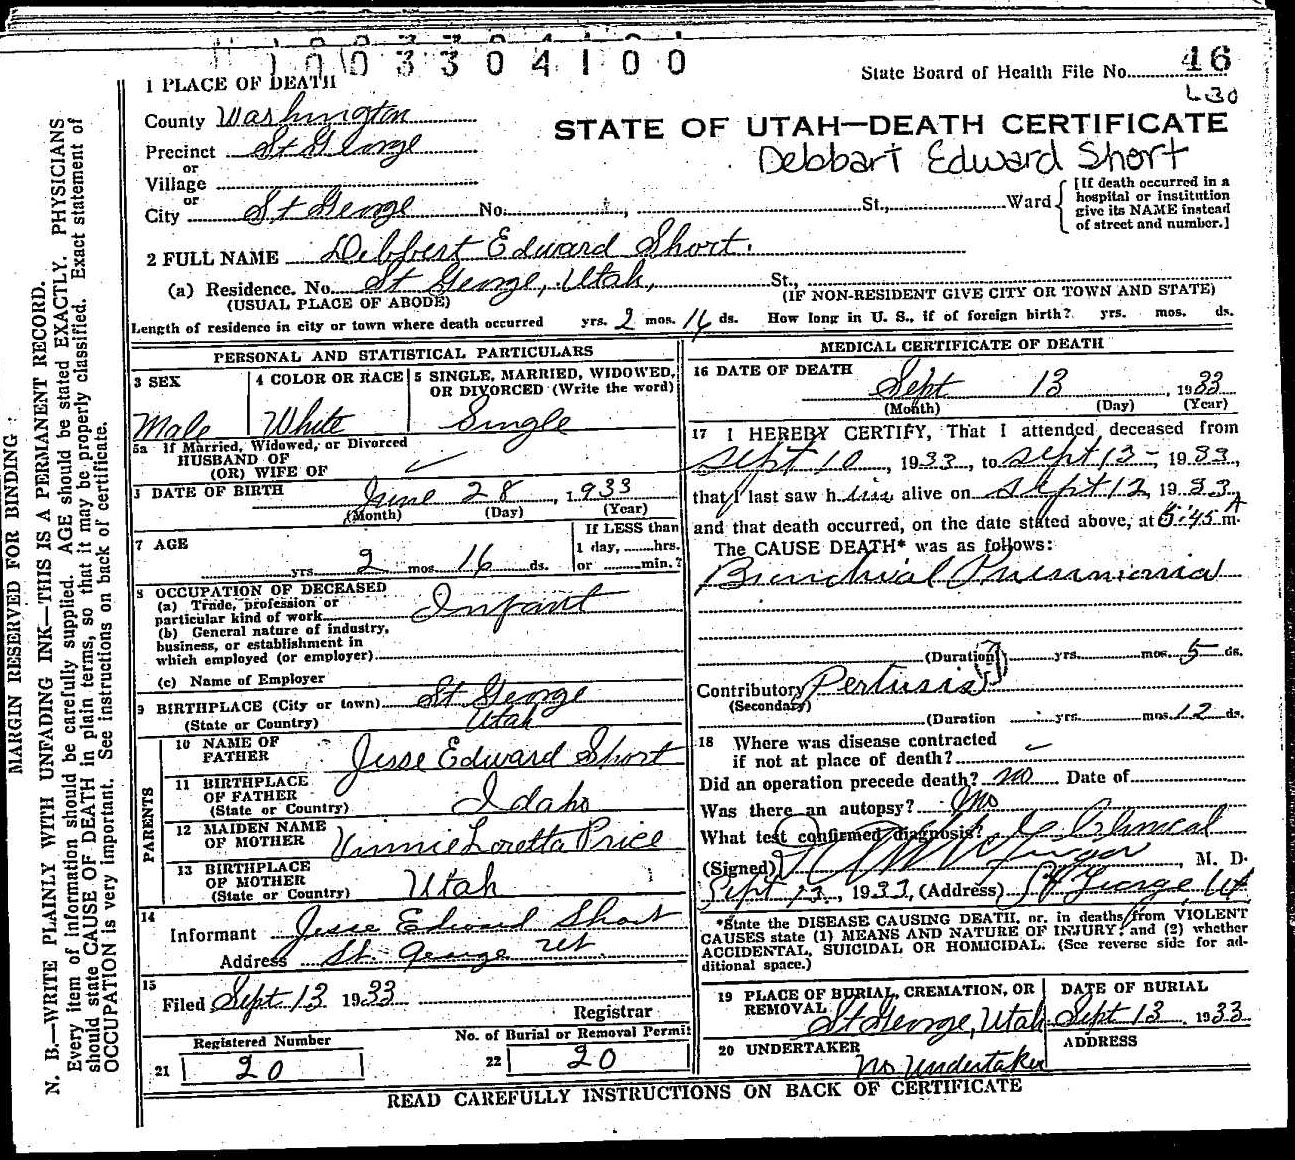 1003304100
State Board of Health File No. 46
L30
1 PLACE OF DEATH
County Washington
STATE OF UTAH—DEATH CERTIFICATE
Precinct St George
Debbart Edward Short
or
Village
or
City St George No. , St., Ward
[If death occurred in a hospital or institution give its NAME instead of street and number.]
2 FULL NAME Debbert Edward Short.
(a) Residence. No. St George, Utah, St.,
(USUAL PLACE OF ABODE) (IF NON-RESIDENT GIVE CITY OR TOWN AND STATE)
Length of residence in city or town where death occurred yrs. 2 mos. 16 ds. How long in U. S., if of foreign birth? yrs. mos. ds.
PERSONAL AND STATISTICAL PARTICULARS
3 SEX
Male
4 COLOR OR RACE
White
5 SINGLE, MARRIED, WIDOWED, OR DIVORCED (Write the word)
Single
5a If Married, Widowed, or Divorced
HUSBAND OF
(OR) WIFE OF
DATE OF BIRTH June 28, 1933
(Month) (Day) (Year)
7 AGE
yrs. 2 mos. 16 ds.
If LESS than
1 day, hrs.
or min.?
8 OCCUPATION OF DECEASED
(a) Trade, profession or
particular kind of work Infant
(b) General nature of industry,
business, or establishment in
which employed (or employer)
(c) Name of Employer
9 BIRTHPLACE (City or town) St George
(State or Country) Utah
PARENTS
10 NAME OF FATHER Jesse Edward Short
11 BIRTHPLACE OF FATHER
(State or Country) Idaho
12 MAIDEN NAME OF MOTHER Vinnie Loretta Price
13 BIRTHPLACE OF MOTHER
(State or Country) Utah
14
Informant Jesse Edward Short
Address St. George Ut
15
Filed Sept 13 1933
Registrar
Registered Number
21 20
No. of Burial or Removal Permit
22 20
MEDICAL CERTIFICATE OF DEATH
16 DATE OF DEATH
Sept 13, 1933
(Month) (Day) (Year)
17 I HEREBY CERTIFY, That I attended deceased from
Sept 10, 1933, to Sept 13, 1933,
that I last saw him alive on Sept 12, 1933,
and that death occurred, on the date stated above, at 5:45 A m.
The CAUSE DEATH* was as follows:
Bronchial Pneumonia
(Duration) yrs. mos. 5 ds.
Contributory Pertusis
(Secondary)
(Duration yrs. mos. 12 ds.
18 Where was disease contracted
if not at place of death?
Did an operation precede death? no Date of
Was there an autopsy? no
What test confirmed diagnosis? Clinical
(Signed) , M. D.
Sept 13, 1933, (Address) St George, Ut
*State the DISEASE CAUSING DEATH, or, in deaths from VIOLENT
CAUSES state (1) MEANS AND NATURE OF INJURY; and (2) whether
ACCIDENTAL, SUICIDAL OR HOMICIDAL. (See reverse side for ad-
ditional space.)
19 PLACE OF BURIAL, CREMATION, OR REMOVAL
St George, Utah
DATE OF BURIAL
Sept 13 1933
20 UNDERTAKER
No Undertaker
ADDRESS
READ CAREFULLY INSTRUCTIONS ON BACK OF CERTIFICATE
MARGIN RESERVED FOR BINDING
N. B.—WRITE PLAINLY WITH UNFADING INK—THIS IS A PERMANENT RECORD.
Every item of information should be carefully supplied. AGE should be stated EXACTLY. PHYSICIANS
should state CAUSE OF DEATH in plain terms, so that it may be properly classified. Exact statement of
OCCUPATION is very important. See instructions on back of certificate.